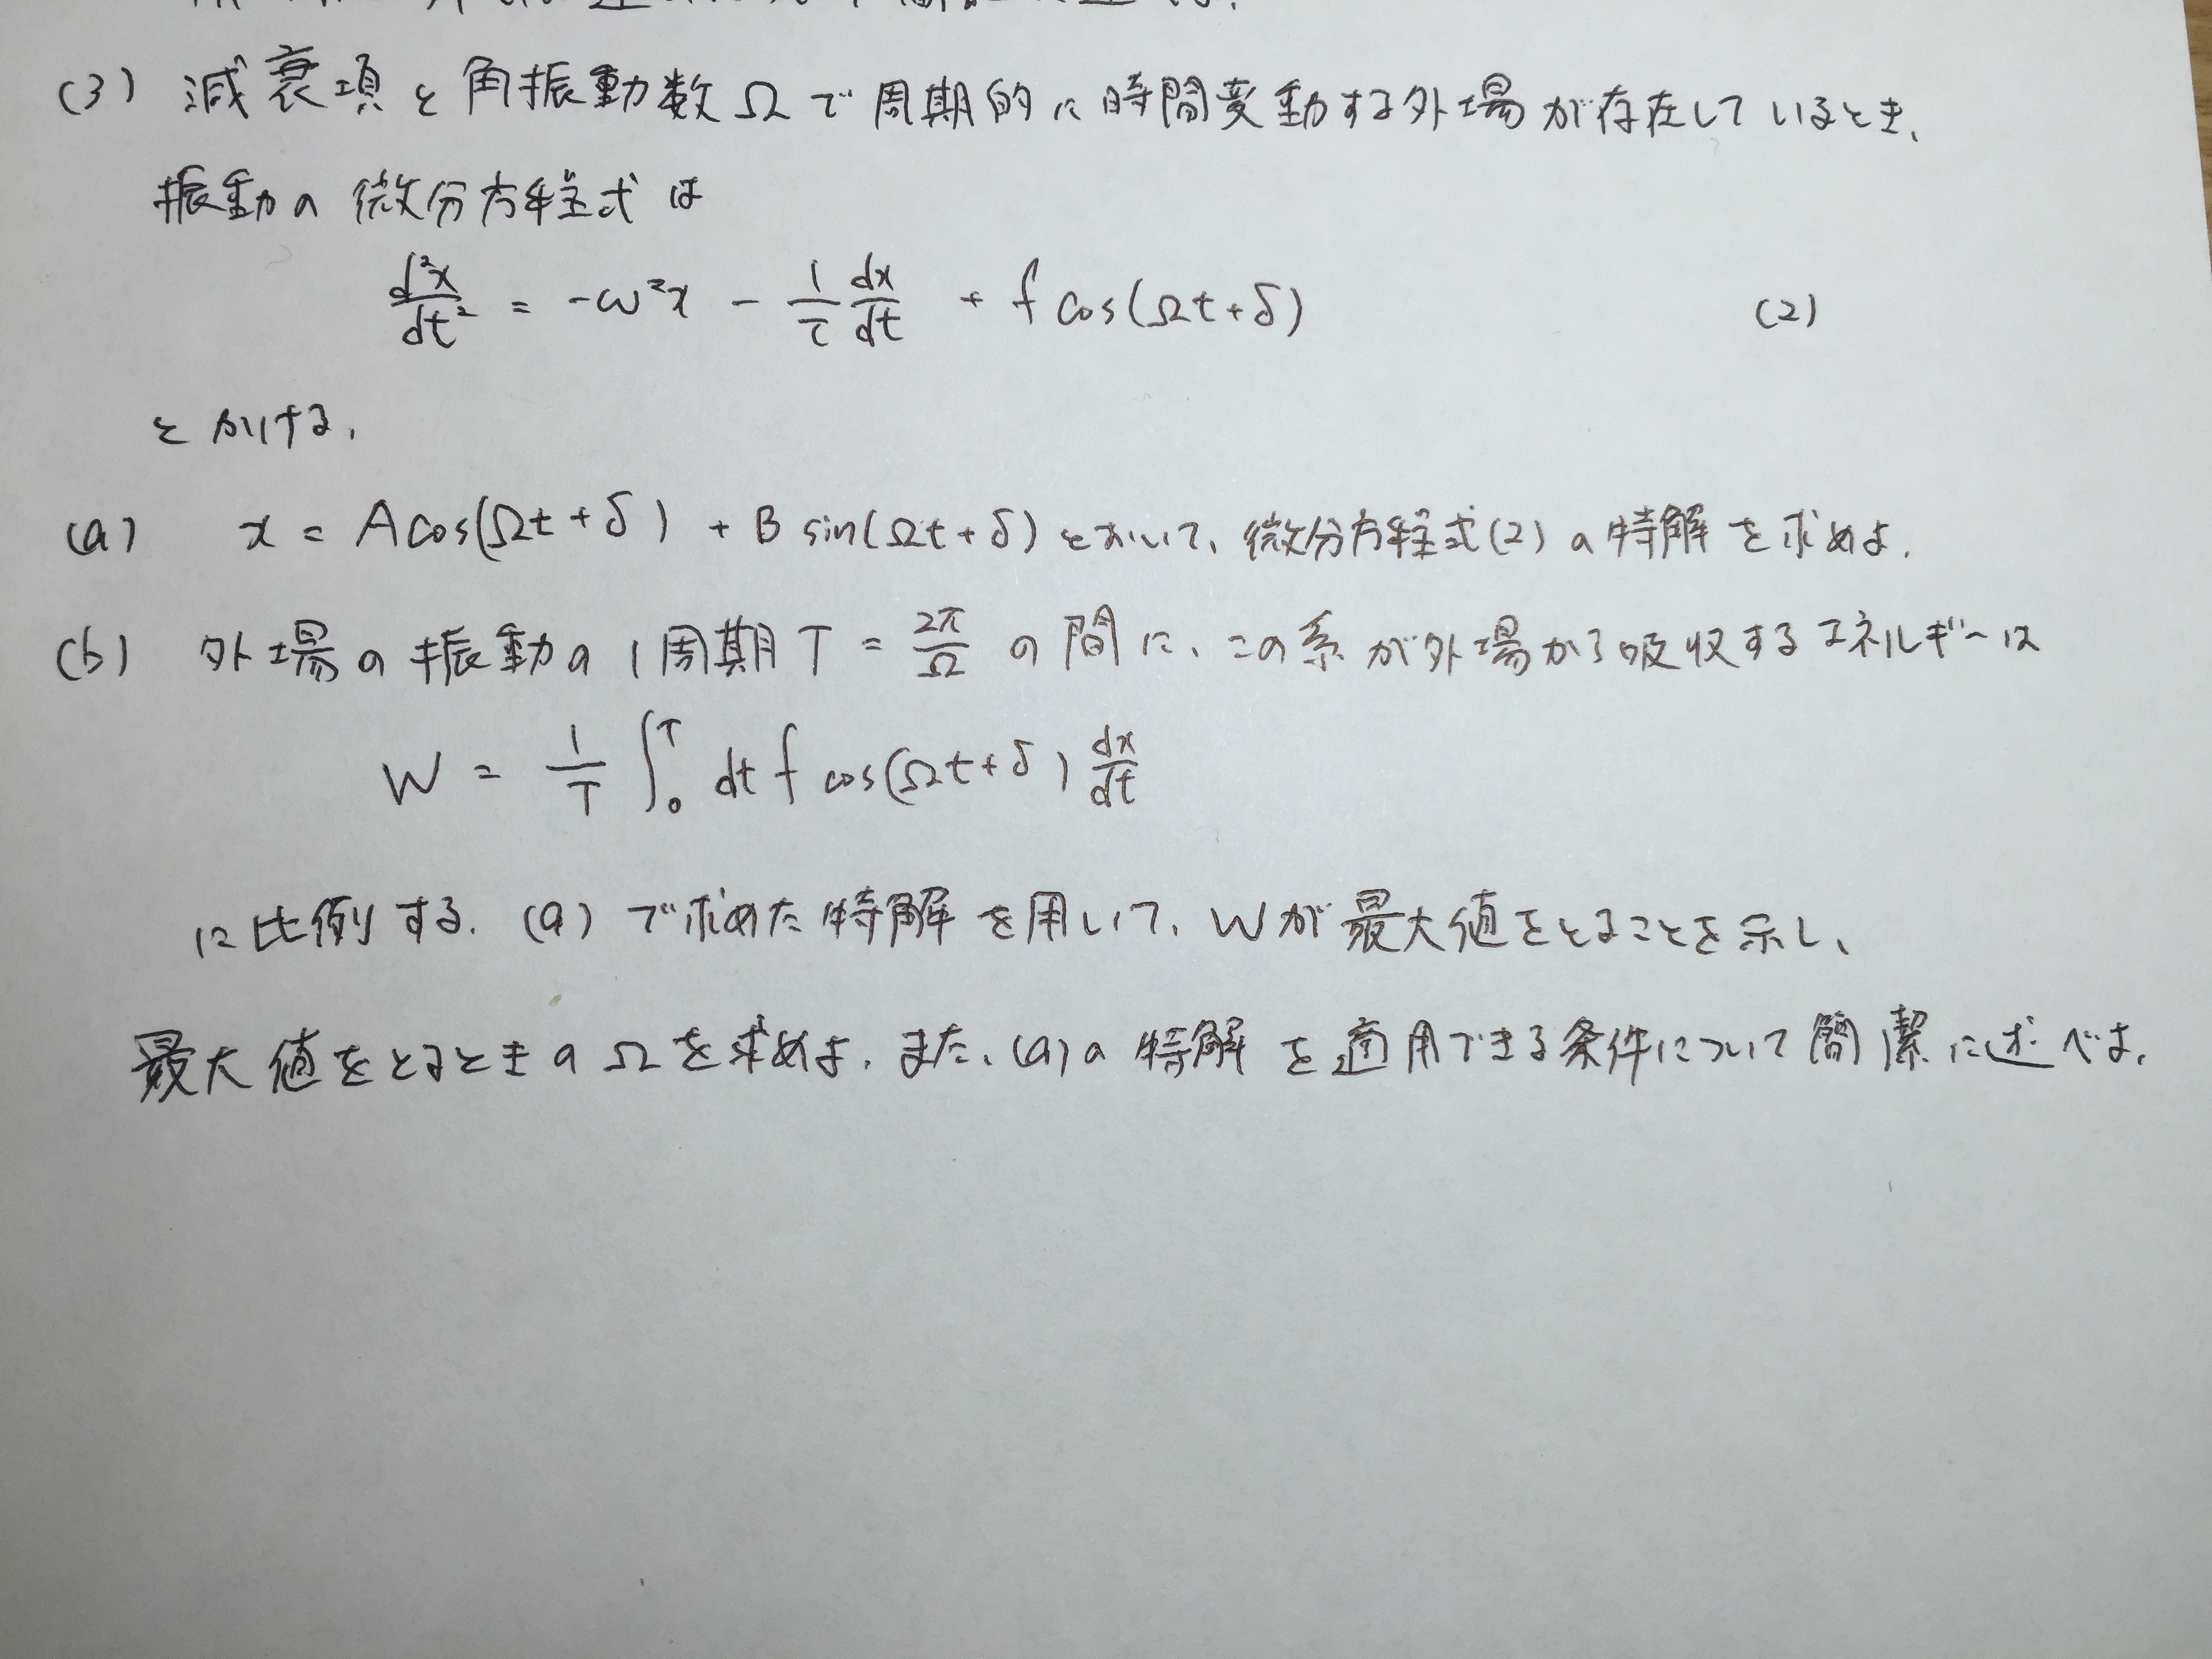 (3) 減衰項と角振動数Ωで周期的に時間変動する外場が存在しているとき、
振動の微分方程式は
d²x/dt² = -ω²x - 1/τ dx/dt + f cos(Ωt+δ) (2)
とかける.
(a) x = A cos(Ωt+δ) + B sin(Ωt+δ) とおいて、微分方程式(2)の特解を求めよ.
(b) 外場の振動の1周期 T = 2π/Ω の間に、この系が外場から吸収するエネルギーは
W = 1/T ∫₀ᵀ dt f cos(Ωt+δ) dx/dt
に比例する. (a)で求めた特解を用いて、Wが最大値をとることを示し、
最大値をとるときのΩを求めよ. また、(a)の特解を適用できる条件について簡潔に述べよ.